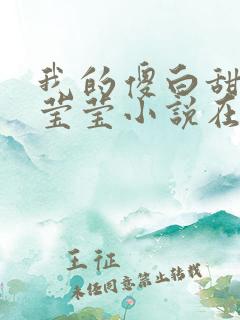 我的傻白甜
莹莹小说在
王征
未经同意禁止转载